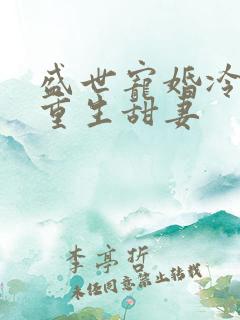 盛世寵婚冷
重生甜妻
李亭哲
未经同意禁止转载